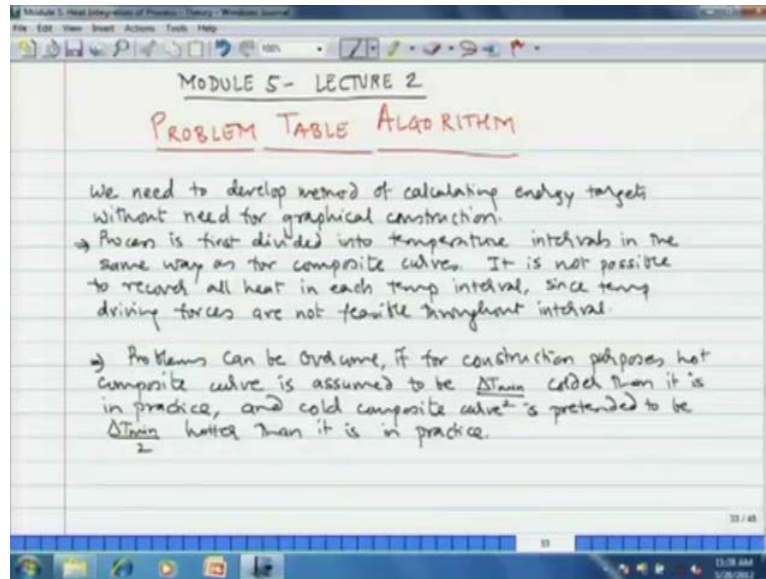 Module 5. Heat Integration of Process - Theory - Windows Journal
File Edit View Insert Actions Tools Help
100%
MODULE 5- LECTURE 2
PROBLEM TABLE ALGORITHM
We need to develop method of calculating energy targets
without need for graphical construction.
→ Process is first divided into temperature intervals in the
same way as for composite curves. It is not possible
to recover all heat in each temp interval, since temp
driving forces are not feasible throughout interval.
→ Problems can be overcome, if for construction purposes hot
composite curve is assumed to be ΔTmin colder than it is
2
in practice, and cold composite curve is pretended to be
ΔTmin hotter than it is in practice.
2
33 / 45
33
11:08 AM
5/28/2012